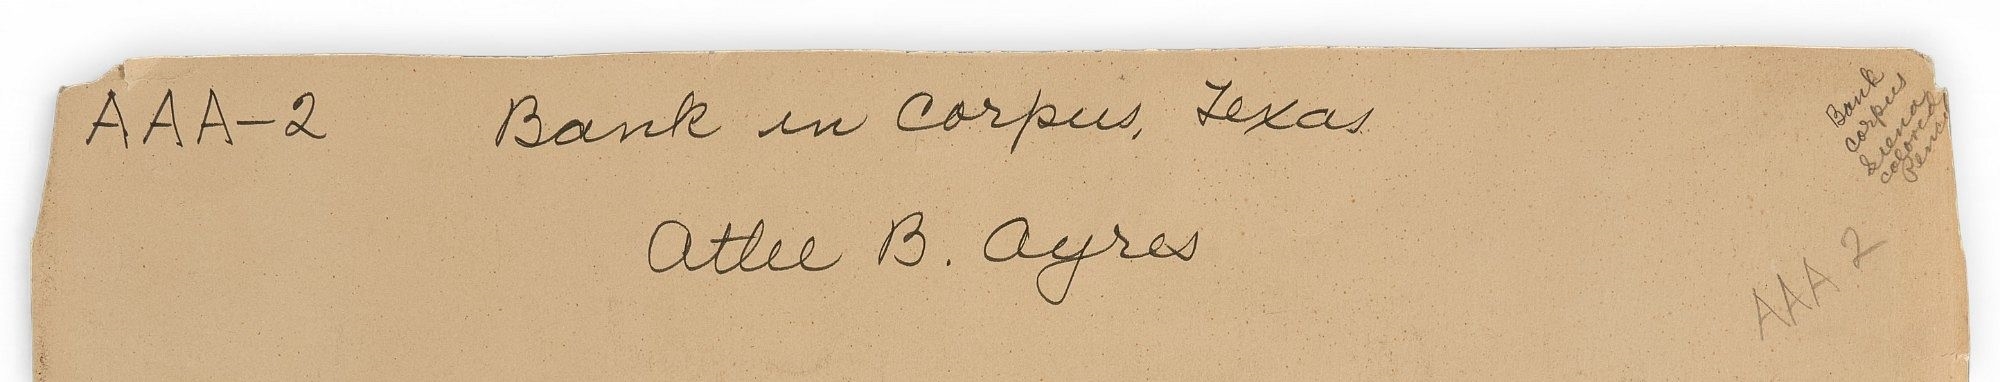 AAA-2 Bank in Corpus, Texas
Atlee B. Ayres
Bank
Corpus
colored
Pencil
AAA 2